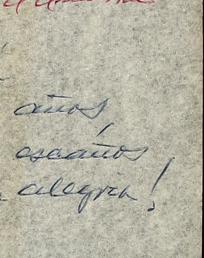 años,
escaños
alegria!